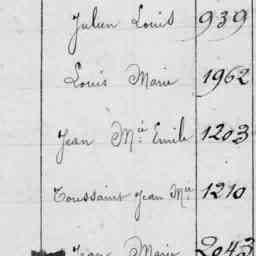 Julien Louis 939
Louis Marie 1962
Jean Mie Emile 1203
Toussaint Jean Mie 1210
Jean Marie 2043